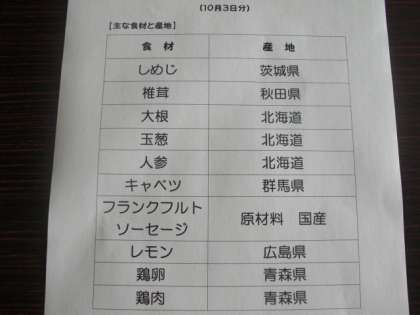 (10月3日分)
【主な食材と産地】
食 材 産 地
しめじ 茨城県
椎茸 秋田県
大根 北海道
玉葱 北海道
人参 北海道
キャベツ 群馬県
フランクフルト
ソーセージ 原材料 国産
レモン 広島県
鶏卵 青森県
鶏肉 青森県